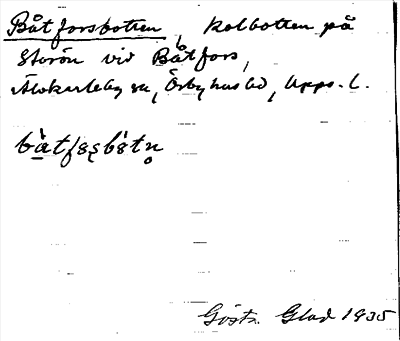 Båtforsbotten, kolbotten på
Storön vid Båtfors,
Älvkarleby sn, Örbyhus hd, Upps. l.
Gösta Glad 1935